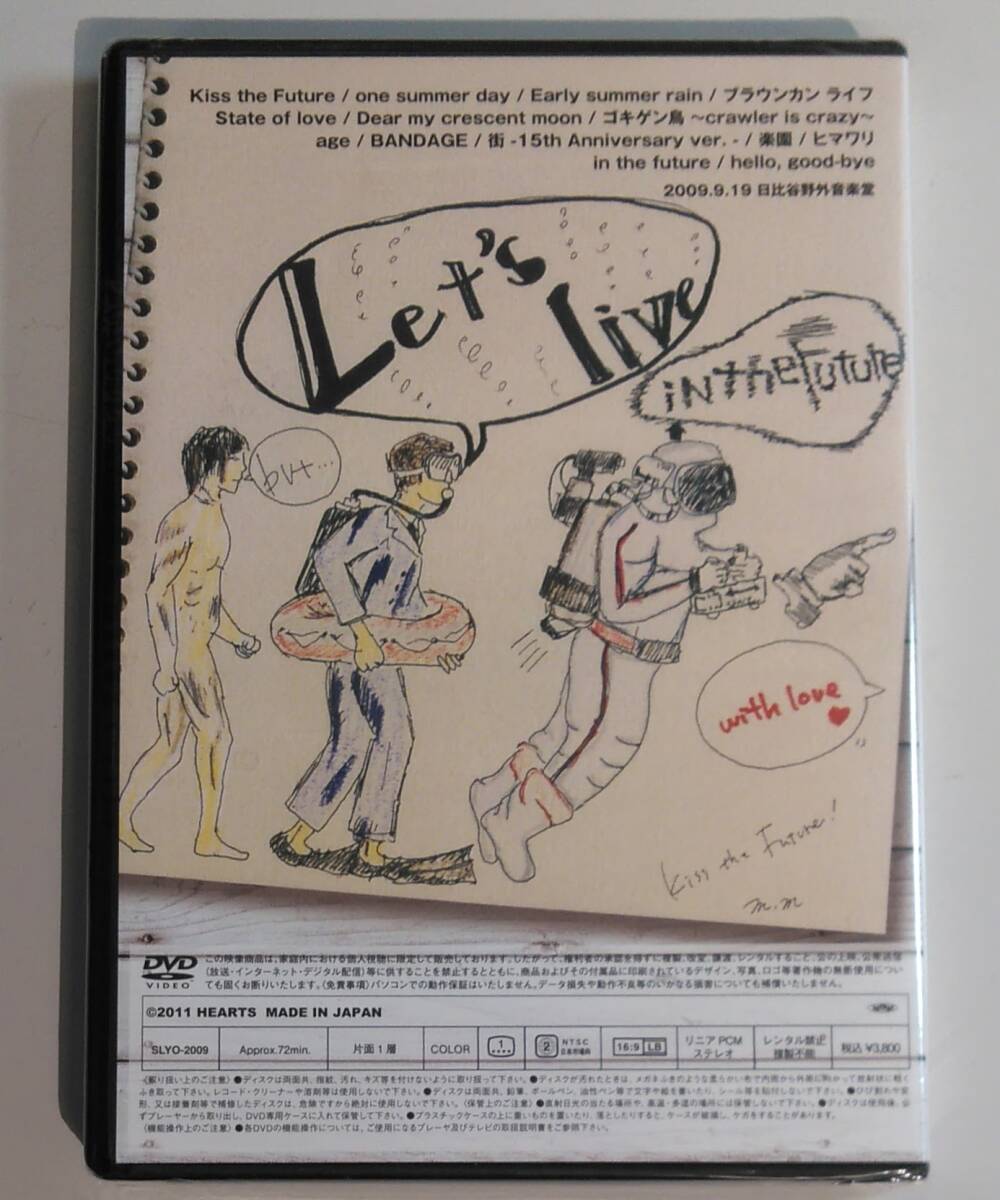 Kiss the Future / one summer day / Early summer rain / ブラウンカン ライフ
State of love / Dear my crescent moon / ゴキゲン鳥 〜crawler is crazy〜
age / BANDAGE / 街 -15th Anniversary ver. - / 楽園 / ヒマワリ
in the future / hello, good-bye
2009.9.19 日比谷野外音楽堂
Let's
live
iN the Future
but...
with love
Kiss the Future!
m.m
DVD
VIDEO
この映像商品は、家庭内における個人視聴に限定して販売しております。したがって、権利者の承諾を得ずに複製、改変、譲渡、レンタルすること、公の上映、公衆送信
(放送・インターネット・デジタル配信)等に供することを禁止するとともに、商品およびその付属品に印刷されているデザイン、写真、ロゴ等著作物の無断使用につい
ても固くお断りいたします。〈免責事項〉パソコンでの動作保証はいたしません。データ損失や動作不良等のいかなる損害についても補償いたしません。
©2011 HEARTS MADE IN JAPAN
SLYO-2009
Approx.72min.
片面1層
COLOR
1
2
NTSC
日本市場向
16:9 LB
リニアPCM
ステレオ
レンタル禁止
複製不能
税込 ¥3,800
〈取り扱い上のご注意〉●ディスクは両面共、指紋、汚れ、キズ等を付けないように取り扱って下さい。●ディスクが汚れたときは、メガネふきのような柔らかい布で内周から外周に向かって放射状に軽く
ふき取って下さい。レコード・クリーナーや溶剤等は使用しないで下さい。●ディスクは両面共、鉛筆、ボールペン、油性ペン等で文字や絵を書いたり、シール等を貼付しないで下さい。●ひび割れや変
形、又は接着剤等で補修したディスクは、危険ですから絶対に使用しないで下さい。〈保管上のご注意〉●直射日光の当たる場所や、高温・多湿の場所には保管しないで下さい。●ディスクは使用後、必
ずプレーヤーから取り出し、DVD専用ケースに入れて保管して下さい。●プラスチックケースの上に重いものを置いたり、落としたりすると、ケースが破損し、ケガをすることがあります。
〈機能操作上のご注意〉●各DVDの機能操作については、ご使用になるプレーヤ及びテレビの取扱説明書をご参照下さい。